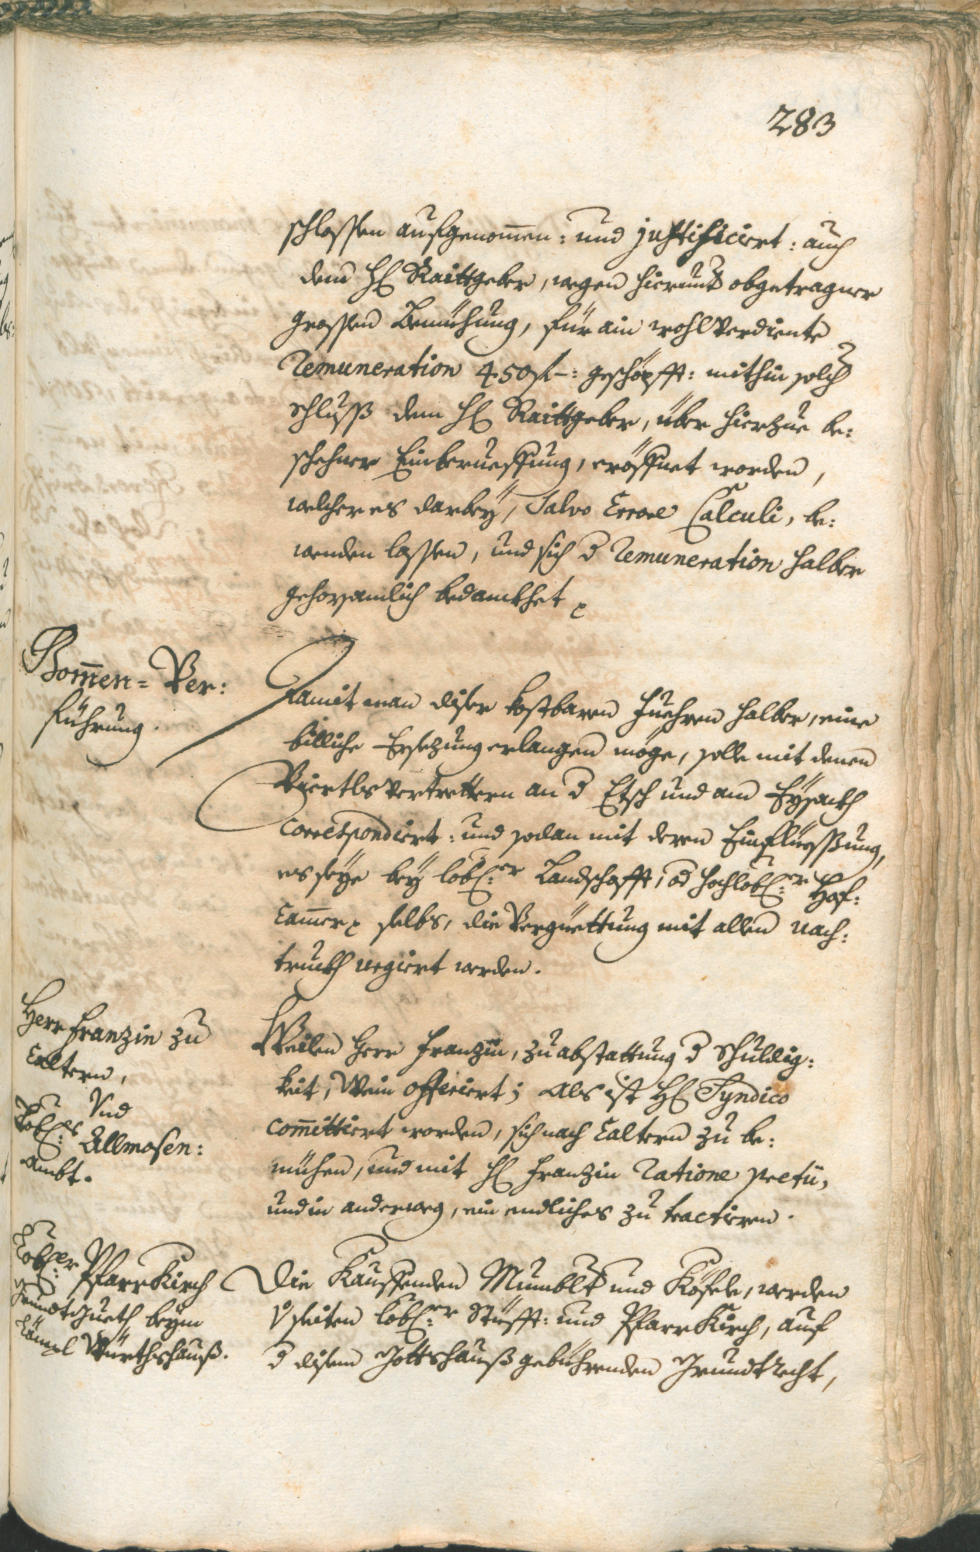 283
schlossen aufgenommen: und justificiert: auch
dem H: Raittgeber, wegen hierundter obgetragner
grossen Bemühung, für ain wohl verdiente
Remuneration 450 f –: geschöpfft: mithin solch
Schluß dem H: Raittgeber, über hierzue be:
schehner Einberueffung, eröffnet worden,
welcher es darbey, Salvo Errore Calculi, be:
wenden lassen, und sich d Remuneration halber
gehorsamblich bedanckhet
Bommen= Ver:
führung.
Damit man diser kostbaren Fuehren halber, eine
billiche Ersezung erlangen möge, solle mit denen
Viertlsvertrettern an d Etsch und am Eysackh
Correspondiert: und sodan mit deren Einfliessung,
es seye bey löbl:er Landschafft, od hochlöbl:er Hof:
Cammer selbs, die Vergüettung mit allen nach:
truckh urgiert werden.
Herr Franzin zu
Caltern,
Und
Löbl:s Allmosen:
Ambt.
Weilen Herr Franzin, zu abstattung d Schuldig:
keit, Wein offeriert; Als ist H: Syndico
committiert worden, sich nach Caltern zu be:
mühen, und mit H: Franzin Ratione pretii,
und in anderweg, ein endliches zu tractieren.
Löbl:er PfarrKirch
Grundtgueth beym
Lämpl Würthshauß.
Die Kauffenden Mumblt und Kofler, werden
v seiten löbl:er Stüfft: und PfarrKirch, auf
d disem Gottshauß gebührenden Grundtrecht,